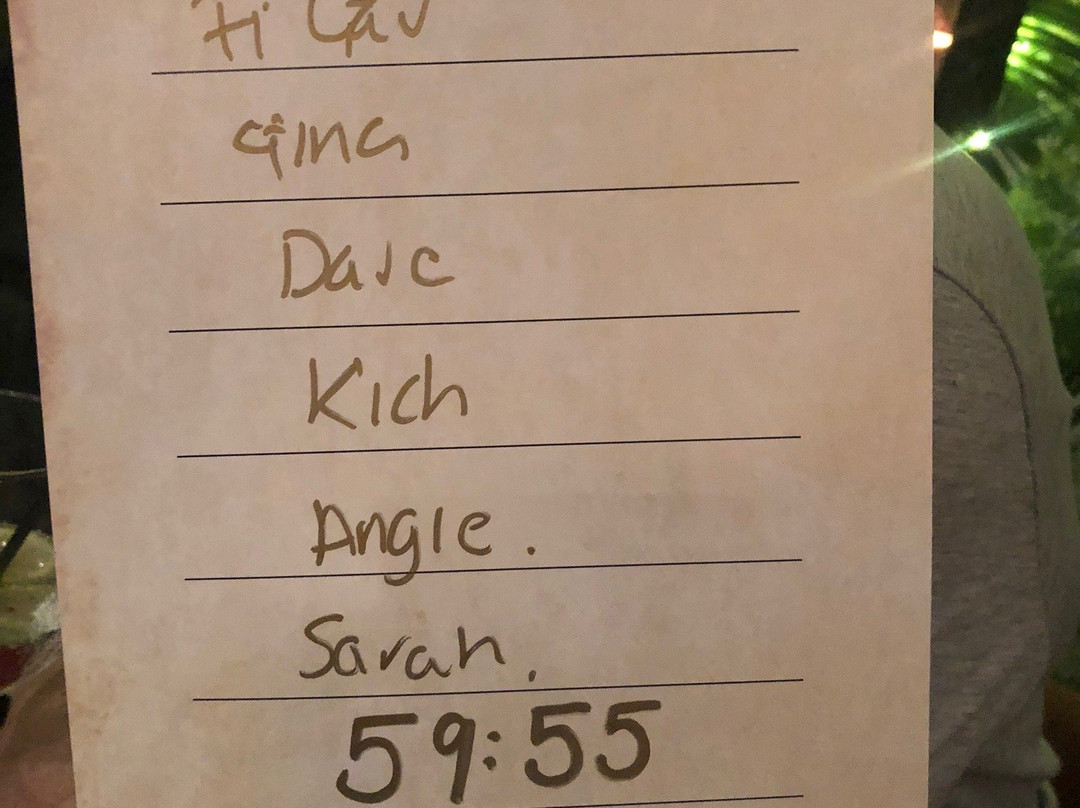 Gina
Darc
Kich
Angle.
Sarah.
59:55